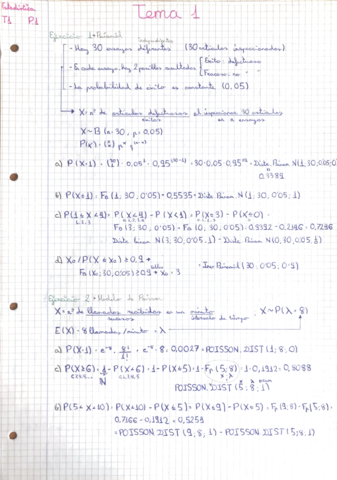 Estadística
T1 P1
Tema 1
Ejercicio 1 • Binomial
independientes
- Hay 30 ensayos diferentes (30 artículos inspeccionados)
- En cada ensayo hay 2 posibles resultados Éxito: defectuoso
Fracaso: no "
- La probabilidad de éxito es constante (0,05)
X = nº de artículos defectuosos al inspeccionar 30 artículos
éxitos en n ensayos
X~B (n: 30, p = 0,05)
a) P(X=1) =
= 30·0,05·0,95
= 0,3389
b) P(X≤1) = F_B (1; 30; 0'05) = 0,5535 =
N(1; 30; 0'05; 1)
c) P(1≤X<4) = P(X<4) - P(X<1) = P(X≤3) - P(X≤0) =
F_B (3; 30; 0'05) - F_B (0; 30; 0'05) = 0.9392 - 0,2146 = 0,7246
N(3, 30, 0'05, 1) -
N(0, 30, 0'05, 1)
d) X₀ / P(X≤X₀) ≥ 0,9
F_B (X₀; 30; 0'05) ≥ 0,9
X₀ = 3
= Inv Binomial (30; 0'05; 0'9)
Ejercicio 2 • Modelo de Poisson
X = nº de llamadas recibidas en un minuto
sucesos intervalo de tiempo
X~P(λ = 8)
E(X) = 8 llamadas/minuto = λ
a) P(X=1) = e⁻⁸ · 8¹/1! = e⁻⁸ · 8 = 0,0027 = POISSON.DIST (1; 8; 0)
c) P(X≥6) = 1 - P(X<6) = 1 - P(X≤5) = 1 - F_P (5; 8) = 1 - 0,1912 = 0,8088
POISSON.DIST (5; 8; 1)
b) P(5<X<10) = P(X<10) - P(X≤5) = P(X≤9) - P(X≤5) = F_P (9; 8) - F_P (5; 8) =
0,7166 - 0,1912 = 0,5254
= POISSON.DIST (9; 8; 1) - POISSON.DIST (5; 8; 1)